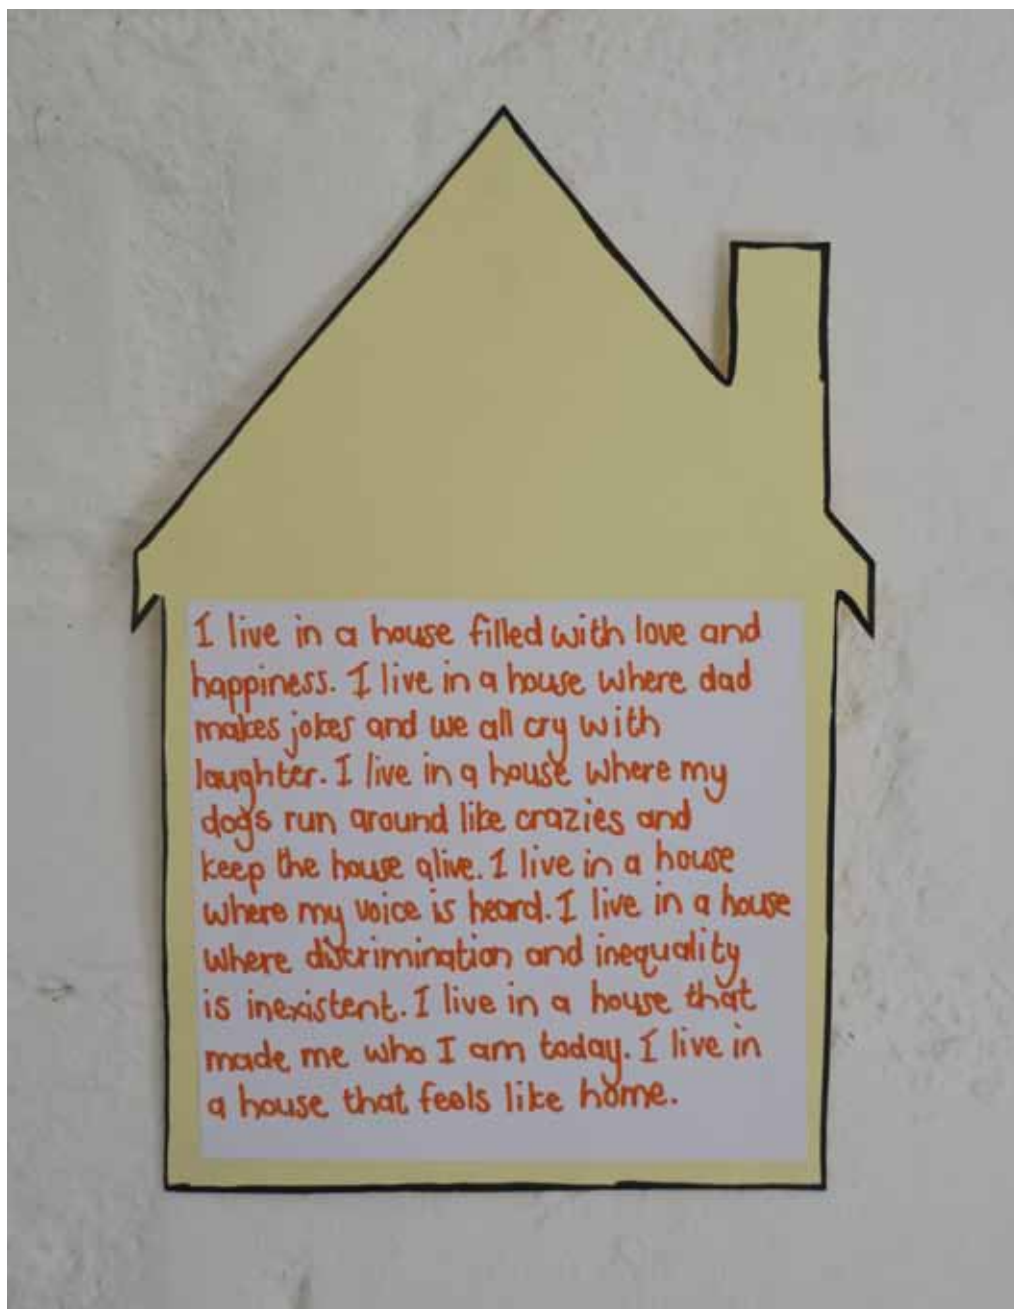 I live in a house filled with love and
happiness. I live in a house where dad
makes jokes and we all cry with
laughter. I live in a house where my
dogs run around like crazies and
keep the house alive. I live in a house
where my voice is heard. I live in a house
where discrimination and inequality
is inexistent. I live in a house that
made me who I am today. I live in
a house that feels like home.